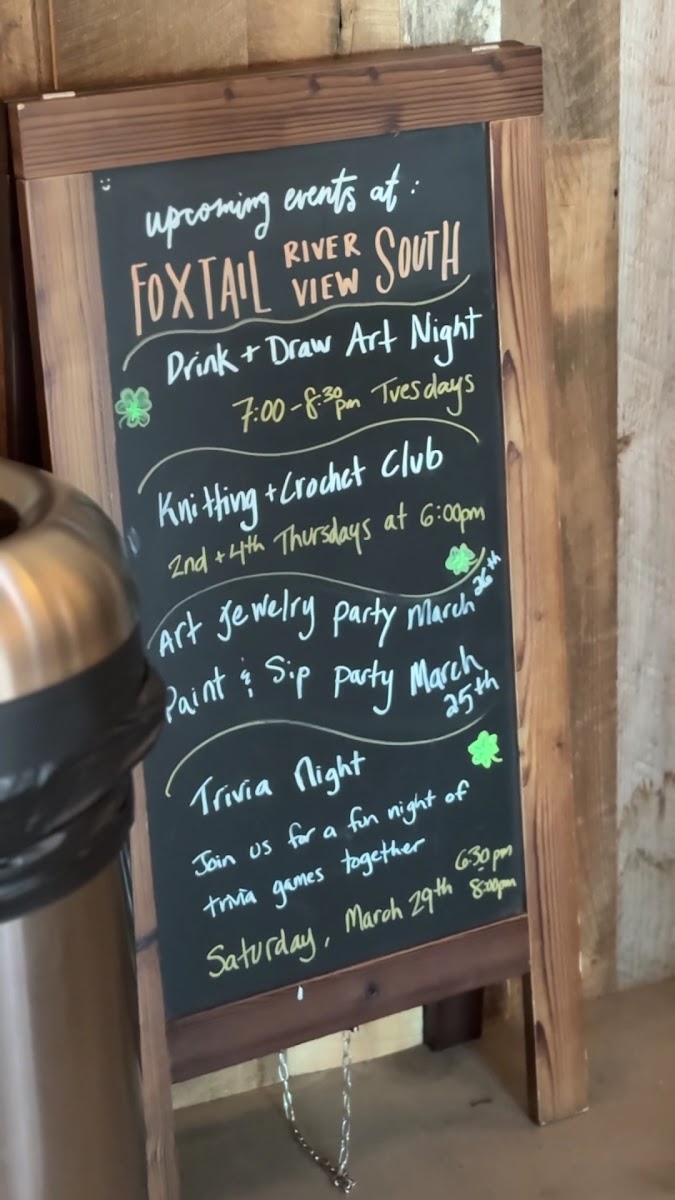 upcoming events at :
FOXTAIL RIVER VIEW SOUTH
Drink + Draw Art Night
7:00 - 8:30pm Tuesdays
Knitting + Crochet Club
2nd + 4th Thursdays at 6:00pm
Art Jewelry party March 26th
Paint & Sip party March 25th
Trivia Night
Join us for a fun night of
trivia games together
Saturday, March 29th 6:30pm
8:00pm